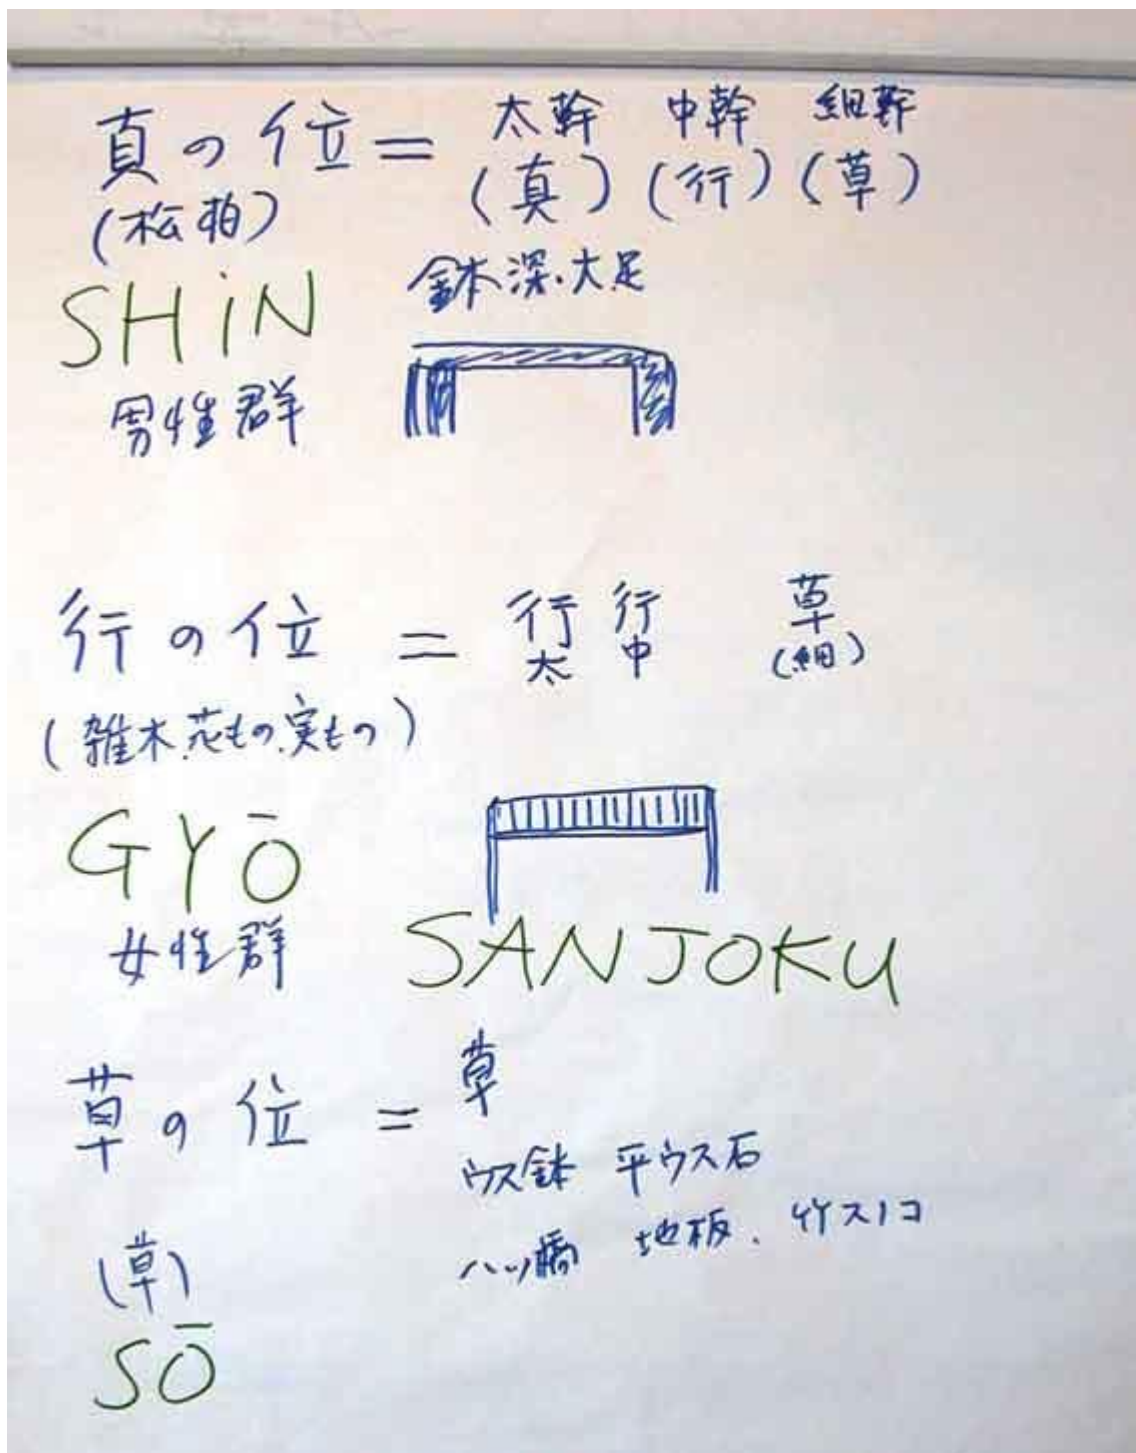 太幹 中幹 細幹
真の位= (真) (行) (草)
(松柏)
SHiN
鉢深.大足
男性群
行の位 = 行 行 草
太 中 (細)
(雑木.花もの.実もの)
GYŌ
女性群
SANJOKU
草の位 = 草
ウス鉢 平ウス石
八ッ橋 地板、竹スノコ
(草)
SŌ